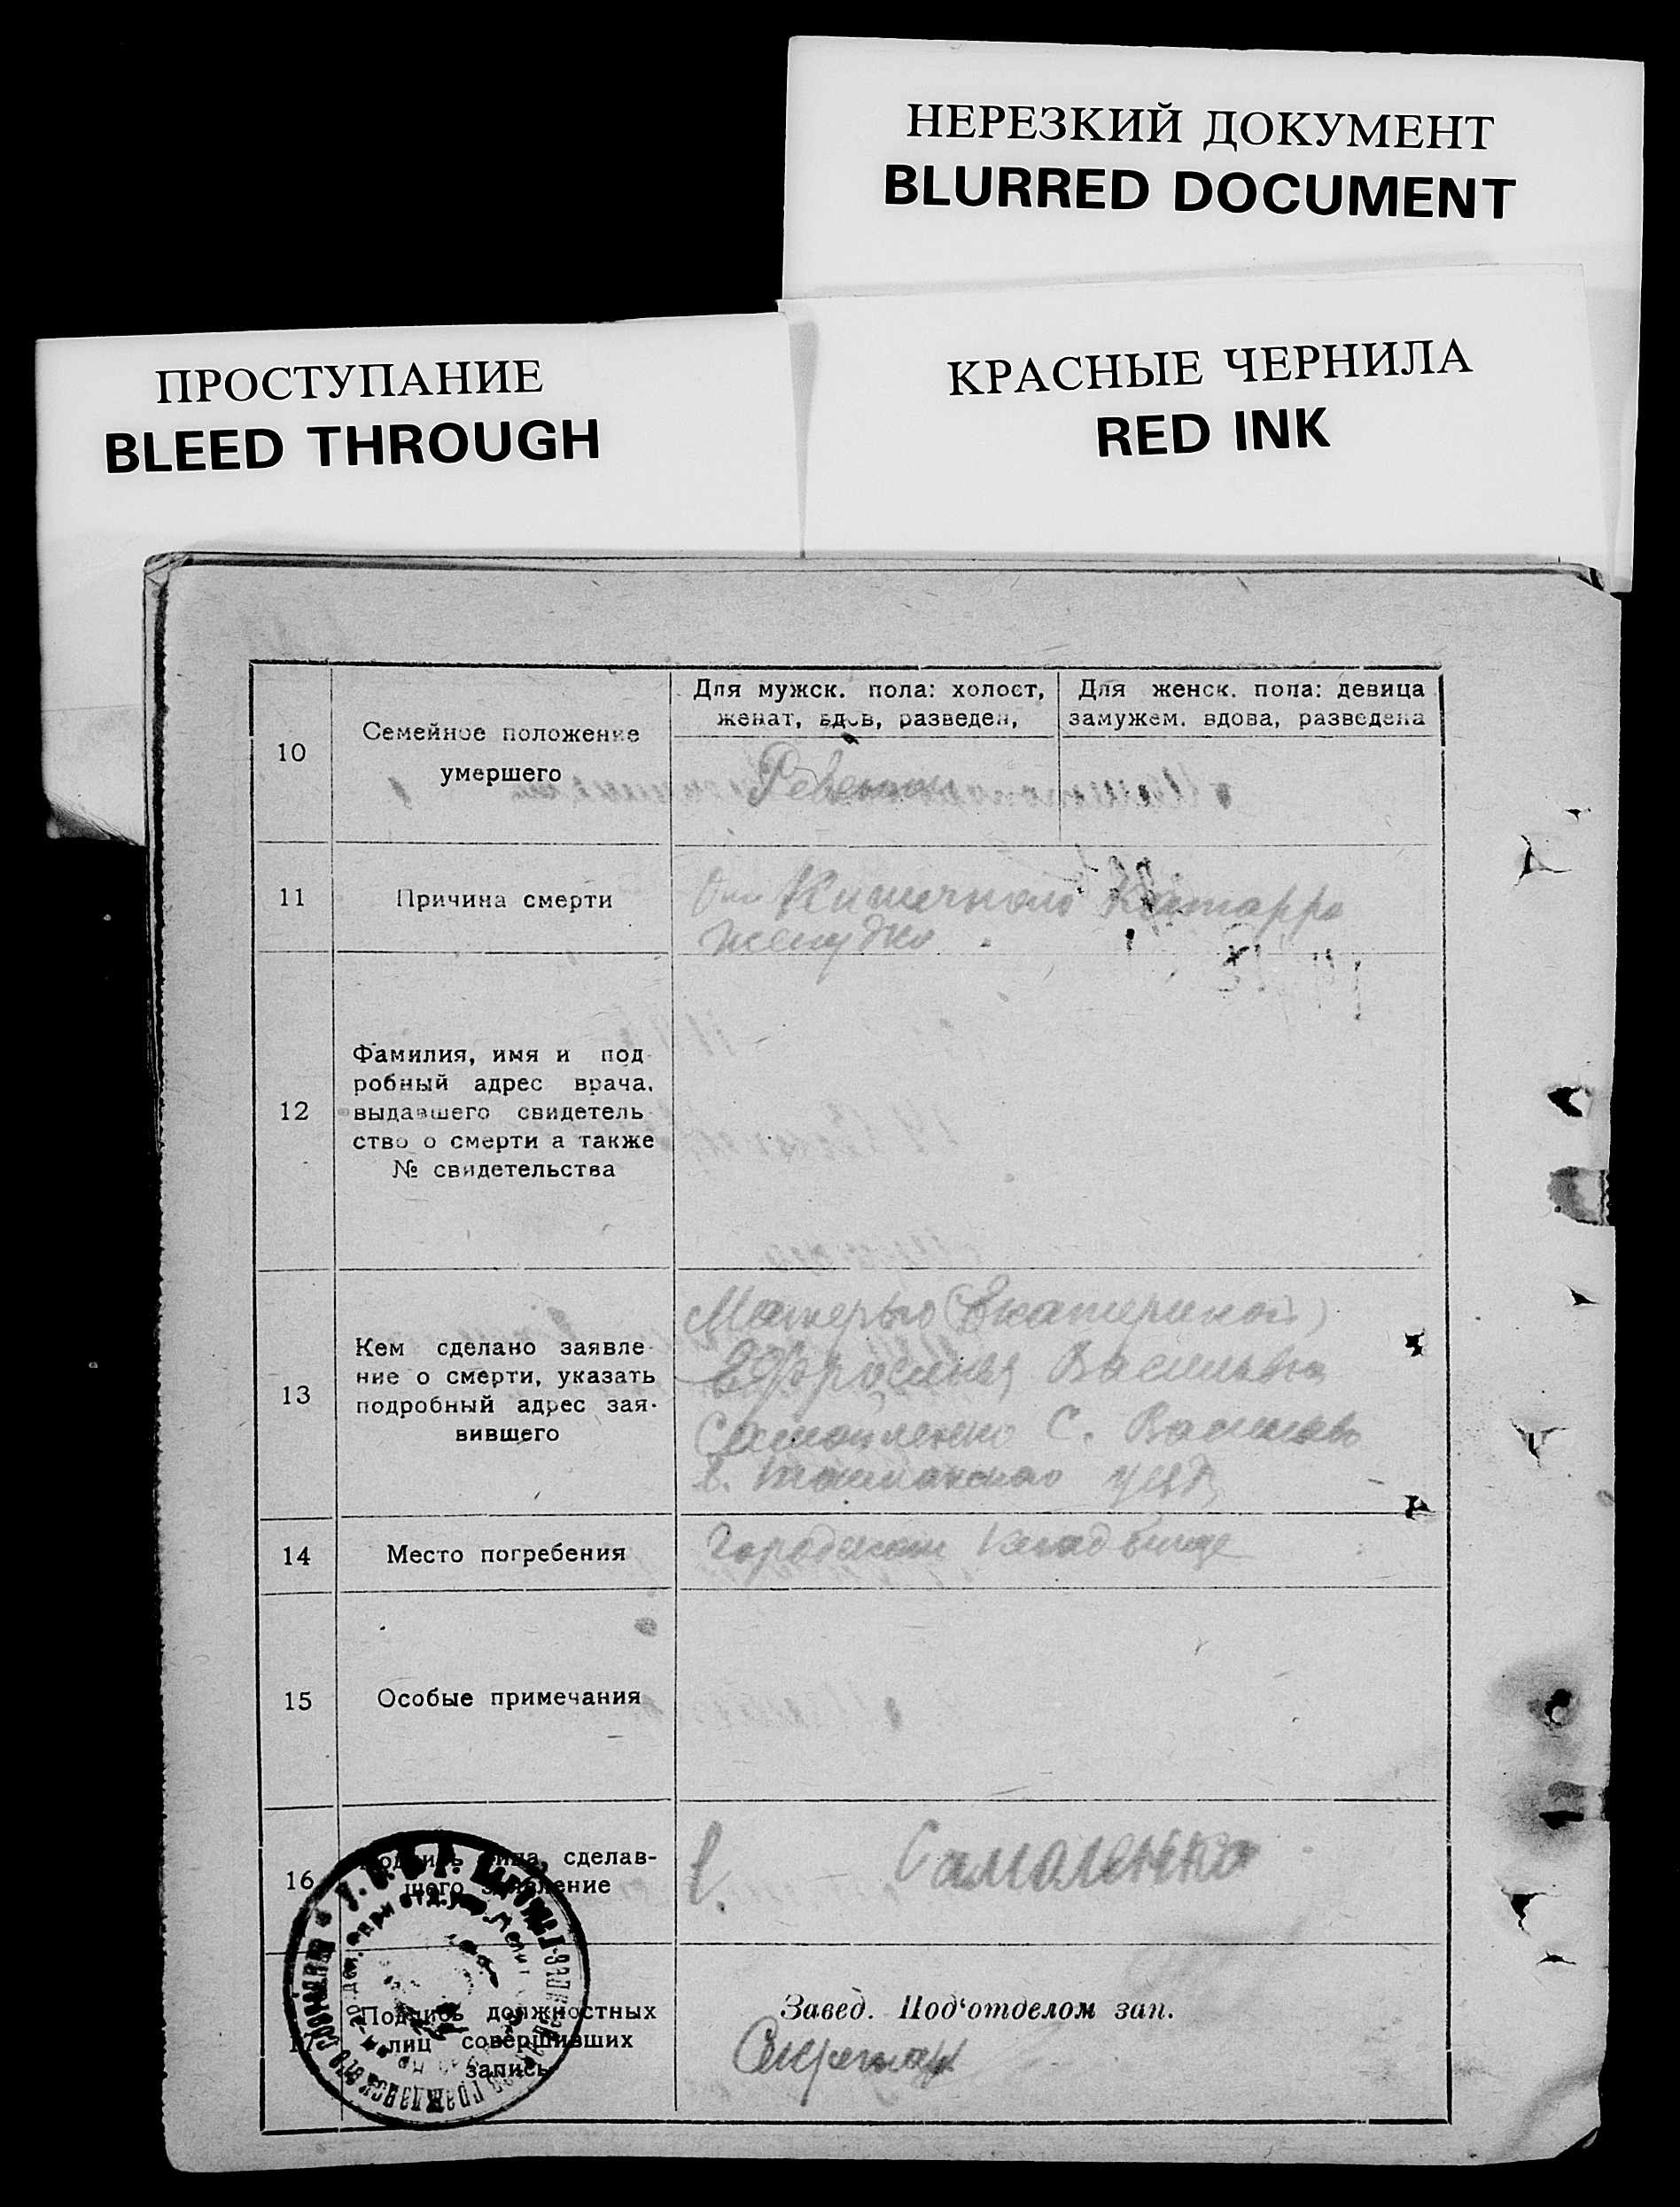 НЕРЕЗКИЙ ДОКУМЕНТ
BLURRED DOCUMENT
ПРОСТУПАНИЕ
BLEED THROUGH
КРАСНЫЕ ЧЕРНИЛА
RED INK
10
Семейное положение
умершего
Для мужск. пола: холост,
женат, вдов, разведен,
Для женск. пола: девица
замужем. вдова, разведена
Ребенок
11
Причина смерти
От Кишечного Катарра
желудка
12
Фамилия, имя и под-
робный адрес врача,
выдавшего свидетель-
ство о смерти а также
№ свидетельства
13
Кем сделано заявле-
ние о смерти, указать
подробный адрес зая-
вившего
Матерью (Екатериной)
Васильевна
С.
14
Место погребения
Городском Кладбище
15
Особые примечания
16
Подпись лица, сделав-
шего заявление
Самоленко
17
Подпись должностных
лиц совершивших
запись
Завед. Под‘отделом зап.
Секретарь